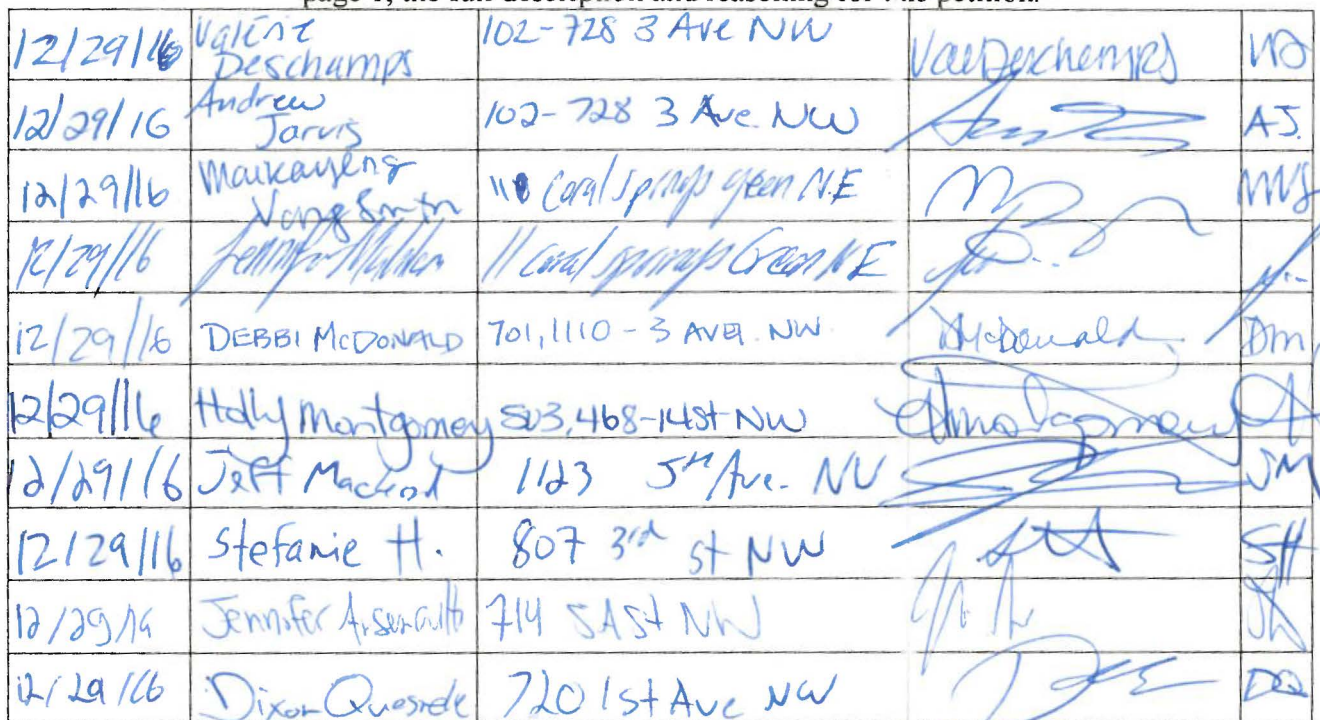 page 1, the full description and reasoning for this petition.
12/29/16 Valérie Deschamps 102-728 3 Ave NW Val Deschamps VD
12/29/16 Andrew Jarvis 102-728 3 Ave. NW AJ.
12/29/16 11 Coral Springs Green N.E MVS
12/29/16 Jennifer 11 Coral Springs Green NE
12/29/16 DEBBI McDONALD 701, 1110 - 3 AVE. NW. DMcDonald Dm
12/29/16 Holly Montgomery 503, 468-14st NW HMontgomery
12/29/16 Jeff Macleod 1123 5th Ave. NW JM
12/29/16 Stefanie H. 807 3rd st NW SH
12/29/16 Jennifer Arsenault 714 5A St NW JA
12/29/16 Dixon 720 1st Ave NW DQ